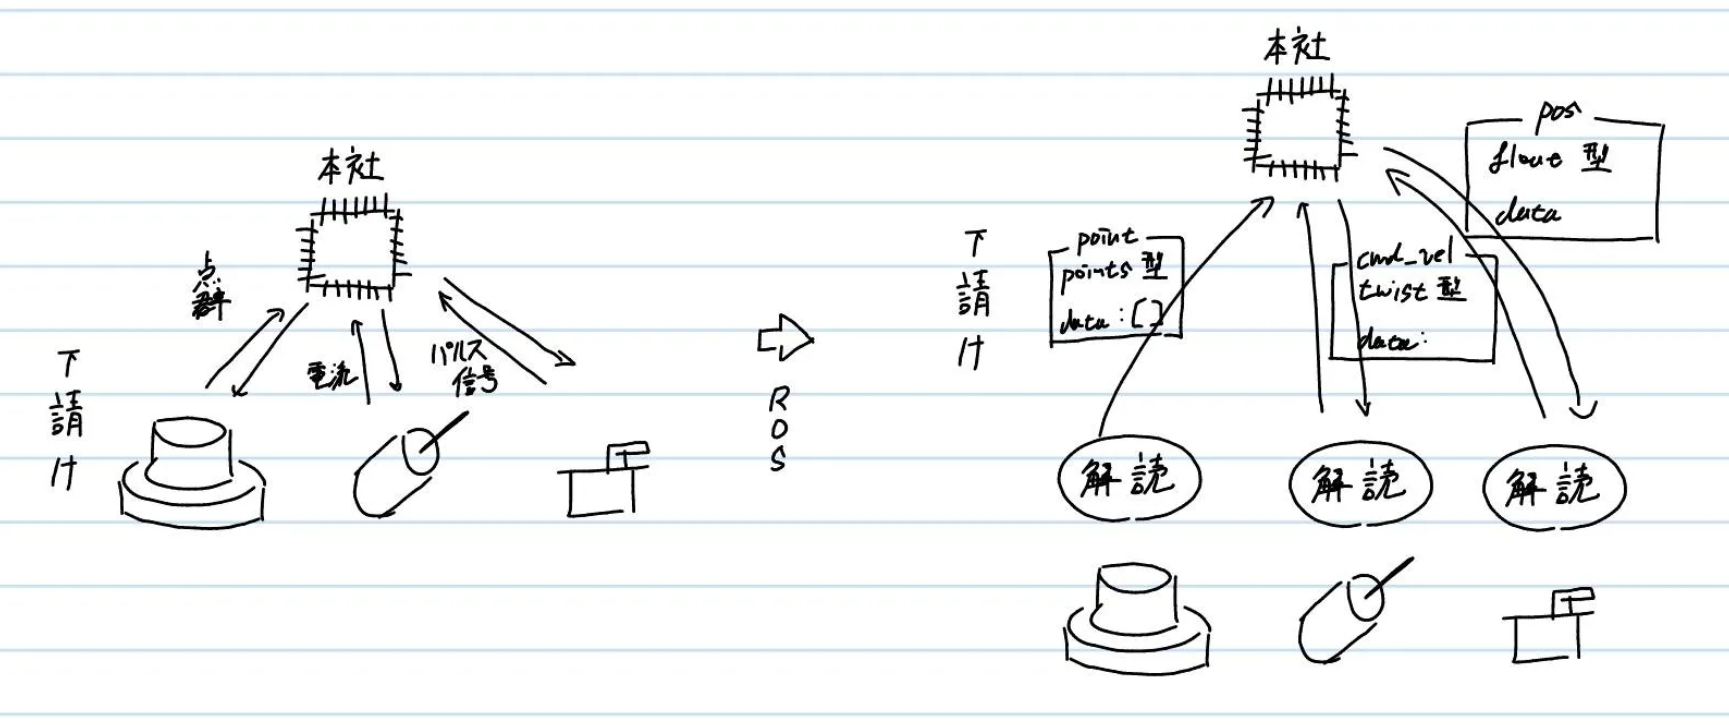 本社
点群
電流
パルス
信号
下請け
ROS
本社
下請け
point
points 型
data : []
cmd_vel
twist 型
data:
pos
float 型
data
解読
解読
解読